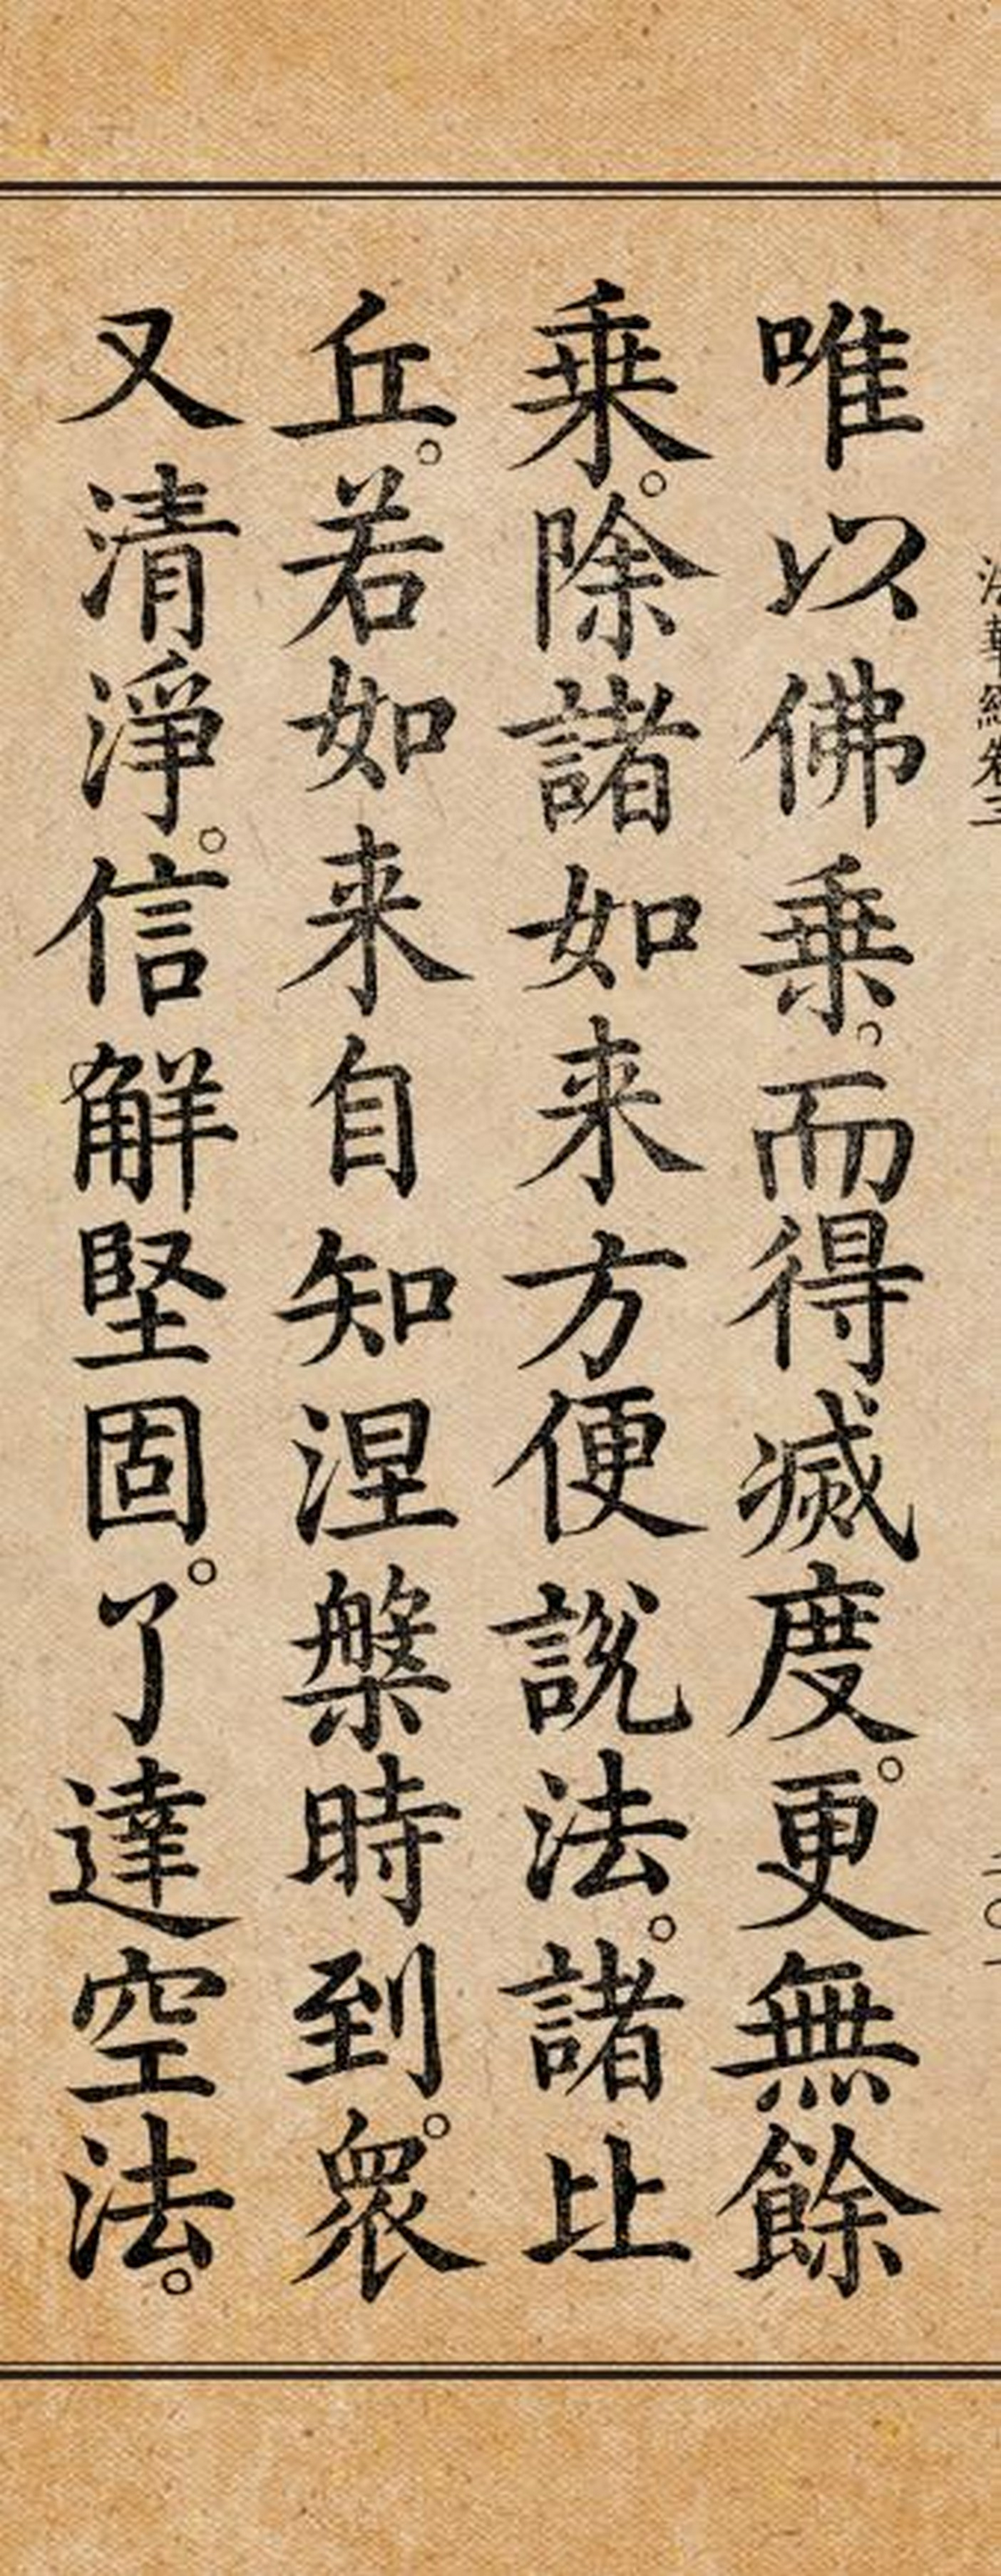 法華經卷三
二〇一
唯以佛乗。而得滅度。更無餘
乗。除諸如来方便說法。諸比
丘。若如来自知涅槃時到。眾
又清淨。信解堅固。了達空法。